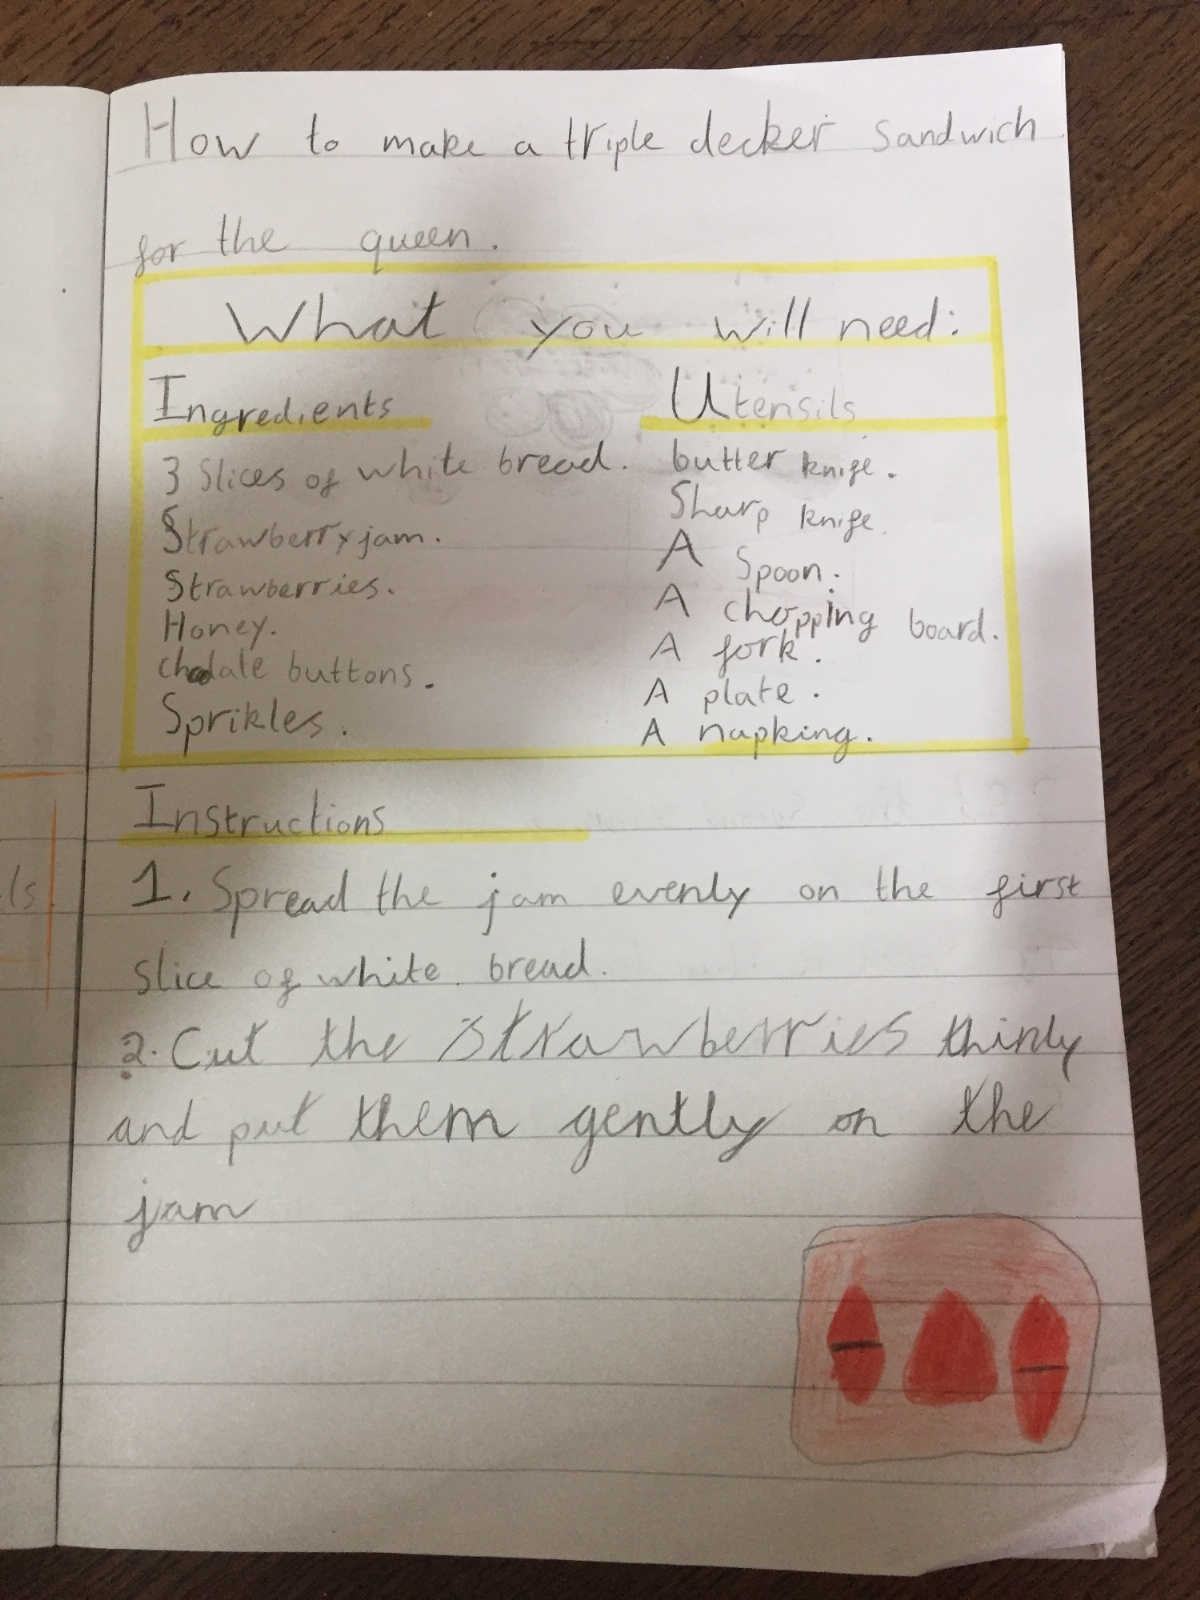 How to make a triple decker sandwich
for the queen.
What you will need:
Ingredients
3 Slices of white bread.
Strawberry jam.
Strawberries.
Honey.
buttons.
Sprikles.
Utensils
butter knife.
Sharp knife.
A Spoon.
A chopping board.
A fork.
A plate.
A napking.
Instructions
1. Spread the jam evenly on the first
slice of white bread.
2. Cut the strawberries thinly
and put them gently on the
jam
ls